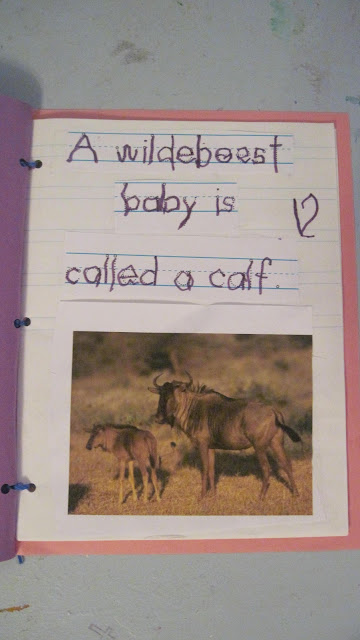 A wildebeest
baby is
called a calf.